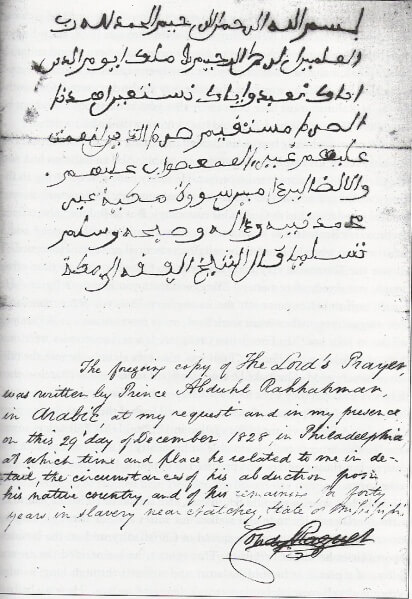 بسم الله الرحمن الرحيم الحمد لله رب
العلمين الرحمن الرحيم ملك يوم الدين
اياك نعبد واياك نستعين اهدنا
الصرط مستقيم صرط الذين انعمت
عليهم غير المغضوب عليهم
ولا الضالين امين سورة مكية
محمد نبيه واله وصحبه وسلم
تسليما قال الشيخ
The foregoing copy of The Lord's Prayer,
was written by Prince Abduhl Rahhahman,
in Arabic, at my request and in my presence
on this 29 day of December 1828, in Philadelphia
at which time and place he related to me in de-
tail the circumstances of his abduction from
his native country, and of his remaining for forty
years in slavery near Natchez, State of Mississippi.
Condy Raguet